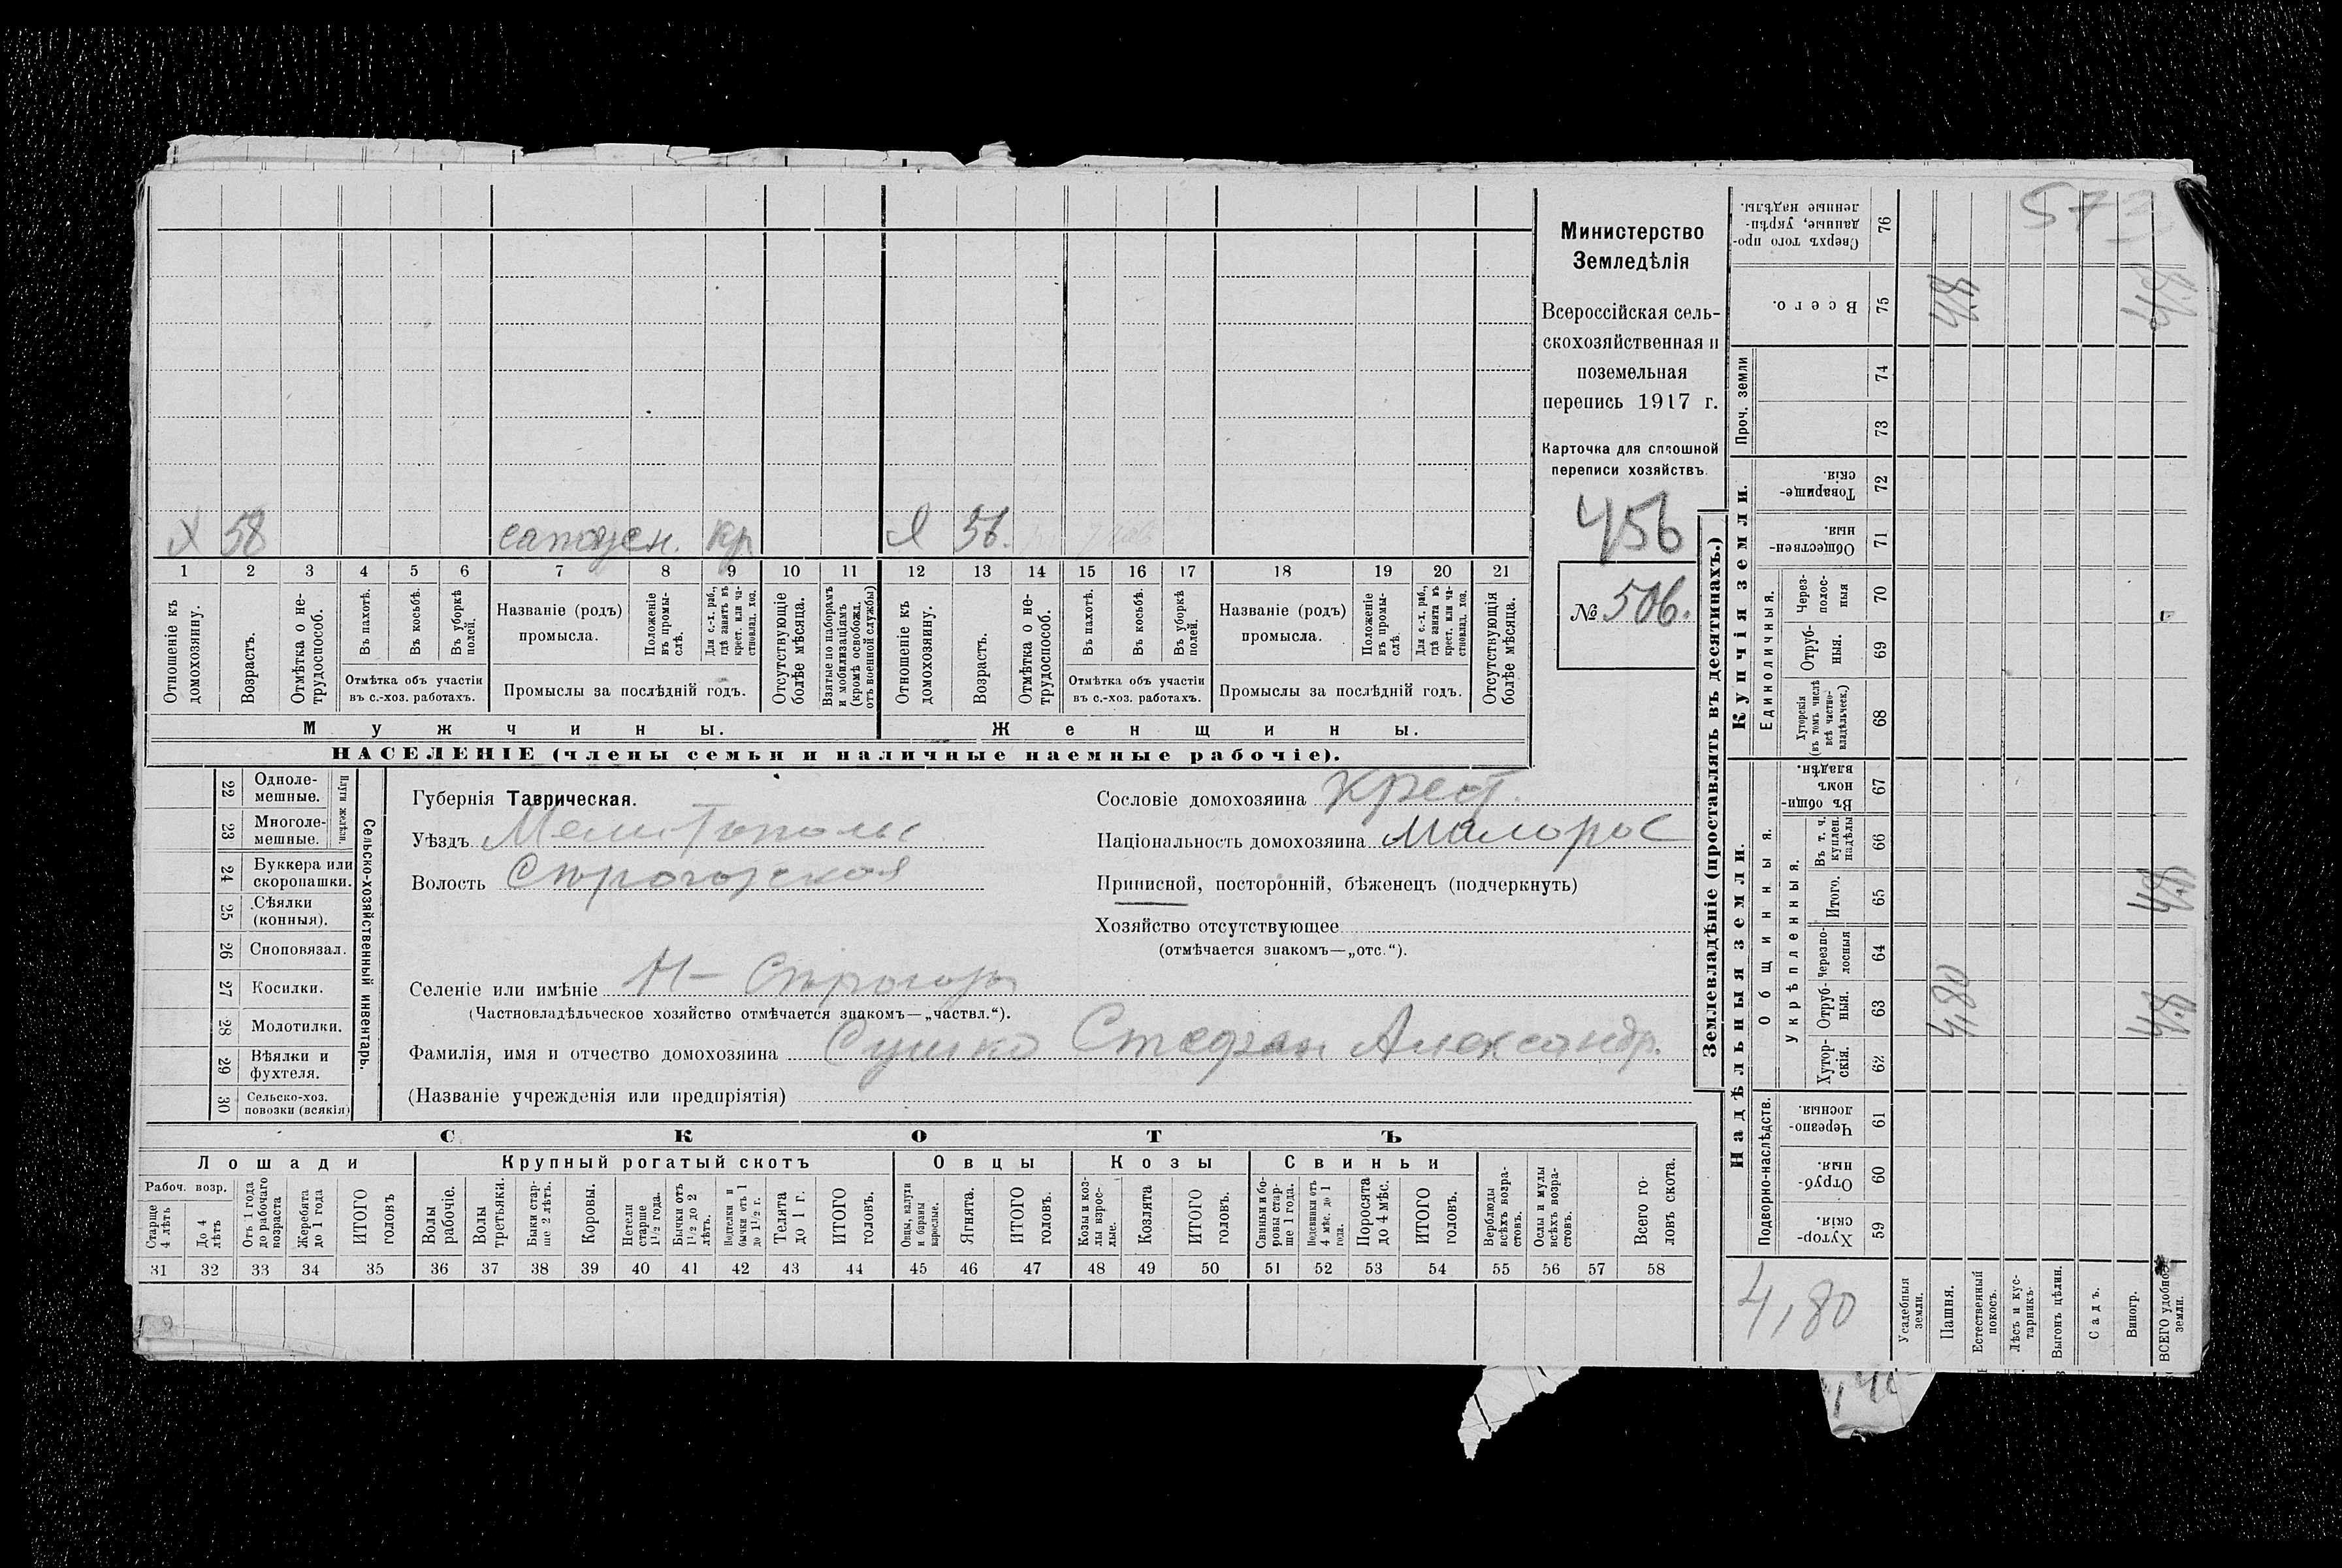 х 58 сапожн. кр
ж 56.
1 2 3 4 5 6 7 8 9 10 11 12 13 14 15 16 17 18 19 20 21
Отношеніе къ домохозяину.
Возрастъ.
Отмѣтка о не-трудоспособ.
Въ пахотѣ.
Въ косьбѣ.
Въ уборкѣ полей.
Отмѣтка объ участіи
въ с.-хоз. работахъ.
Названіе (родъ)
промысла.
Положеніе въ промы-слѣ.
Для с.-х. раб., гдѣ занятъ въ крест. или ча-стновлад. хоз.
Промыслы за послѣдній годъ.
Отсутствующіе болѣе мѣсяца.
Взятые по наборамъ и мобилизаціямъ (кромѣ освобожд. отъ военной службы)
Отношеніе къ домохозяину.
Возрастъ.
Отмѣтка о не-трудоспособ.
Въ пахотѣ.
Въ косьбѣ.
Въ уборкѣ полей.
Отмѣтка объ участіи
въ с.-хоз. работахъ.
Названіе (родъ)
промысла.
Положеніе въ промы-слѣ.
Для с.-х. раб., гдѣ занята въ крест. или ча-стновлад. хоз.
Промыслы за послѣдній годъ.
Отсутствующія болѣе мѣсяца.
Мужчины.
Женщины.
НАСЕЛЕНІЕ (члены семьи и наличные наемные рабочіе).
Министерство
Земледѣлія
Всероссійская сель-
скохозяйственная и
поземельная
перепись 1917 г.
Карточка для сплошной
переписи хозяйствъ.
456
№ 506.
22 Одноле-мешные.
23 Многоле-мешные.
Плуги желѣзн.
24 Буккера или скоропашки.
25 Сѣялки (конныя).
26 Сноповязал.
27 Косилки.
28 Молотилки.
29 Вѣялки и фухтеля.
30 Сельско-хоз. повозки (всякія)
Сельско-хозяйственный инвентарь.
Губернія Таврическая.
Уѣздъ Мелитополс
Волость Сѣрогозская
Сословіе домохозяина Крест.
Національность домохозяина Малорос
Приписной, посторонній, бѣженецъ (подчеркнуть)
Хозяйство отсутствующее
(отмѣчается знакомъ—„отс.“).
Селеніе или имѣніе Н– Сѣрогозы
(Частновладѣльческое хозяйство отмѣчается знакомъ—„частвл.“).
Фамилія, имя и отчество домохозяина Сушко Стефан Александр.
(Названіе учрежденія или предпріятія)
СКОТЪ
Лошади
Крупный рогатый скотъ
Овцы
Козы
Свиньи
Рабоч. возр.
Старше 4 лѣтъ
До 4 лѣтъ
Отъ 1 года до рабочаго возраста
Жеребята до 1 года
ИТОГО головъ
Волы рабочіе.
Волы третьяки.
Быки стар-ше 2 лѣтъ.
Коровы.
Нетели старше 1½ года.
Бычки отъ 1½ до 2 лѣтъ.
Подтелки и бычки отъ 1 до 1½ г.
Телята до 1 г.
ИТОГО головъ.
Овцы, валухи и бараны взрослые.
Ягнята.
ИТОГО головъ.
Козы и коз-лы взрос-лые.
Козлята
ИТОГО головъ.
Свиньи и бо-ровы стар-ше 1 года.
Подсвинки отъ 4 мѣс. до 1 года.
Поросята до 4 мѣс.
ИТОГО головъ.
Верблюды всѣхъ возра-стовъ.
Ослы и мулы всѣхъ возра-стовъ.
Всего го-ловъ скота.
31 32 33 34 35 36 37 38 39 40 41 42 43 44 45 46 47 48 49 50 51 52 53 54 55 56 57 58
Землевладѣніе (проставлять въ десятинахъ.)
Надѣльныя земли.
Купчія земли.
Проч. земли
Подворно-наслѣдств.
Общинныя.
Укрѣпленныя.
Единоличныя.
Сверхъ того про-данные, укрѣп-ленные надѣлы. 76
Всего. 75 4,8 4,8
74
73
Товарище-скія. 72
Обществен-ныя. 71
Через-полос-ныя 70
Отруб-ныя. 69
Хуторскія (въ томъ числѣ всѣ частно-владѣльческ.) 68
Въ общин-номъ владѣн. 67
Въ т. ч. куплен. надѣлы 66
Итого. 65 4,8
Черезпо-лосныя 64
Отруб-ныя. 63 4,80 4,8
Хутор-скія. 62
Черезпо-лосныя. 61
Отруб-ныя. 60
Хутор-скія. 59
4,80
Усадебныя земли.
Пашня.
Естественный покосъ.
Лѣсъ и кус-тарникъ.
Выгонъ цѣлин.
Садъ.
Виногр.
ВСЕГО удобной земли.